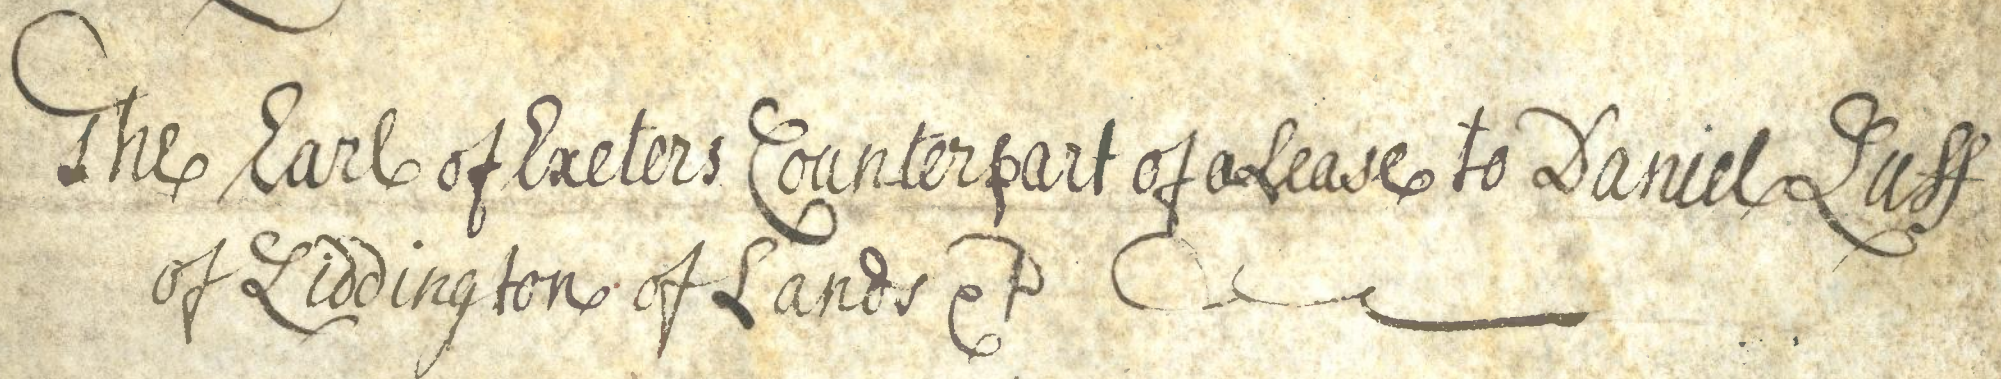 The Earl of Exeters Counterpart of a Lease to Daniel Luff
of Liddington of Lands &c